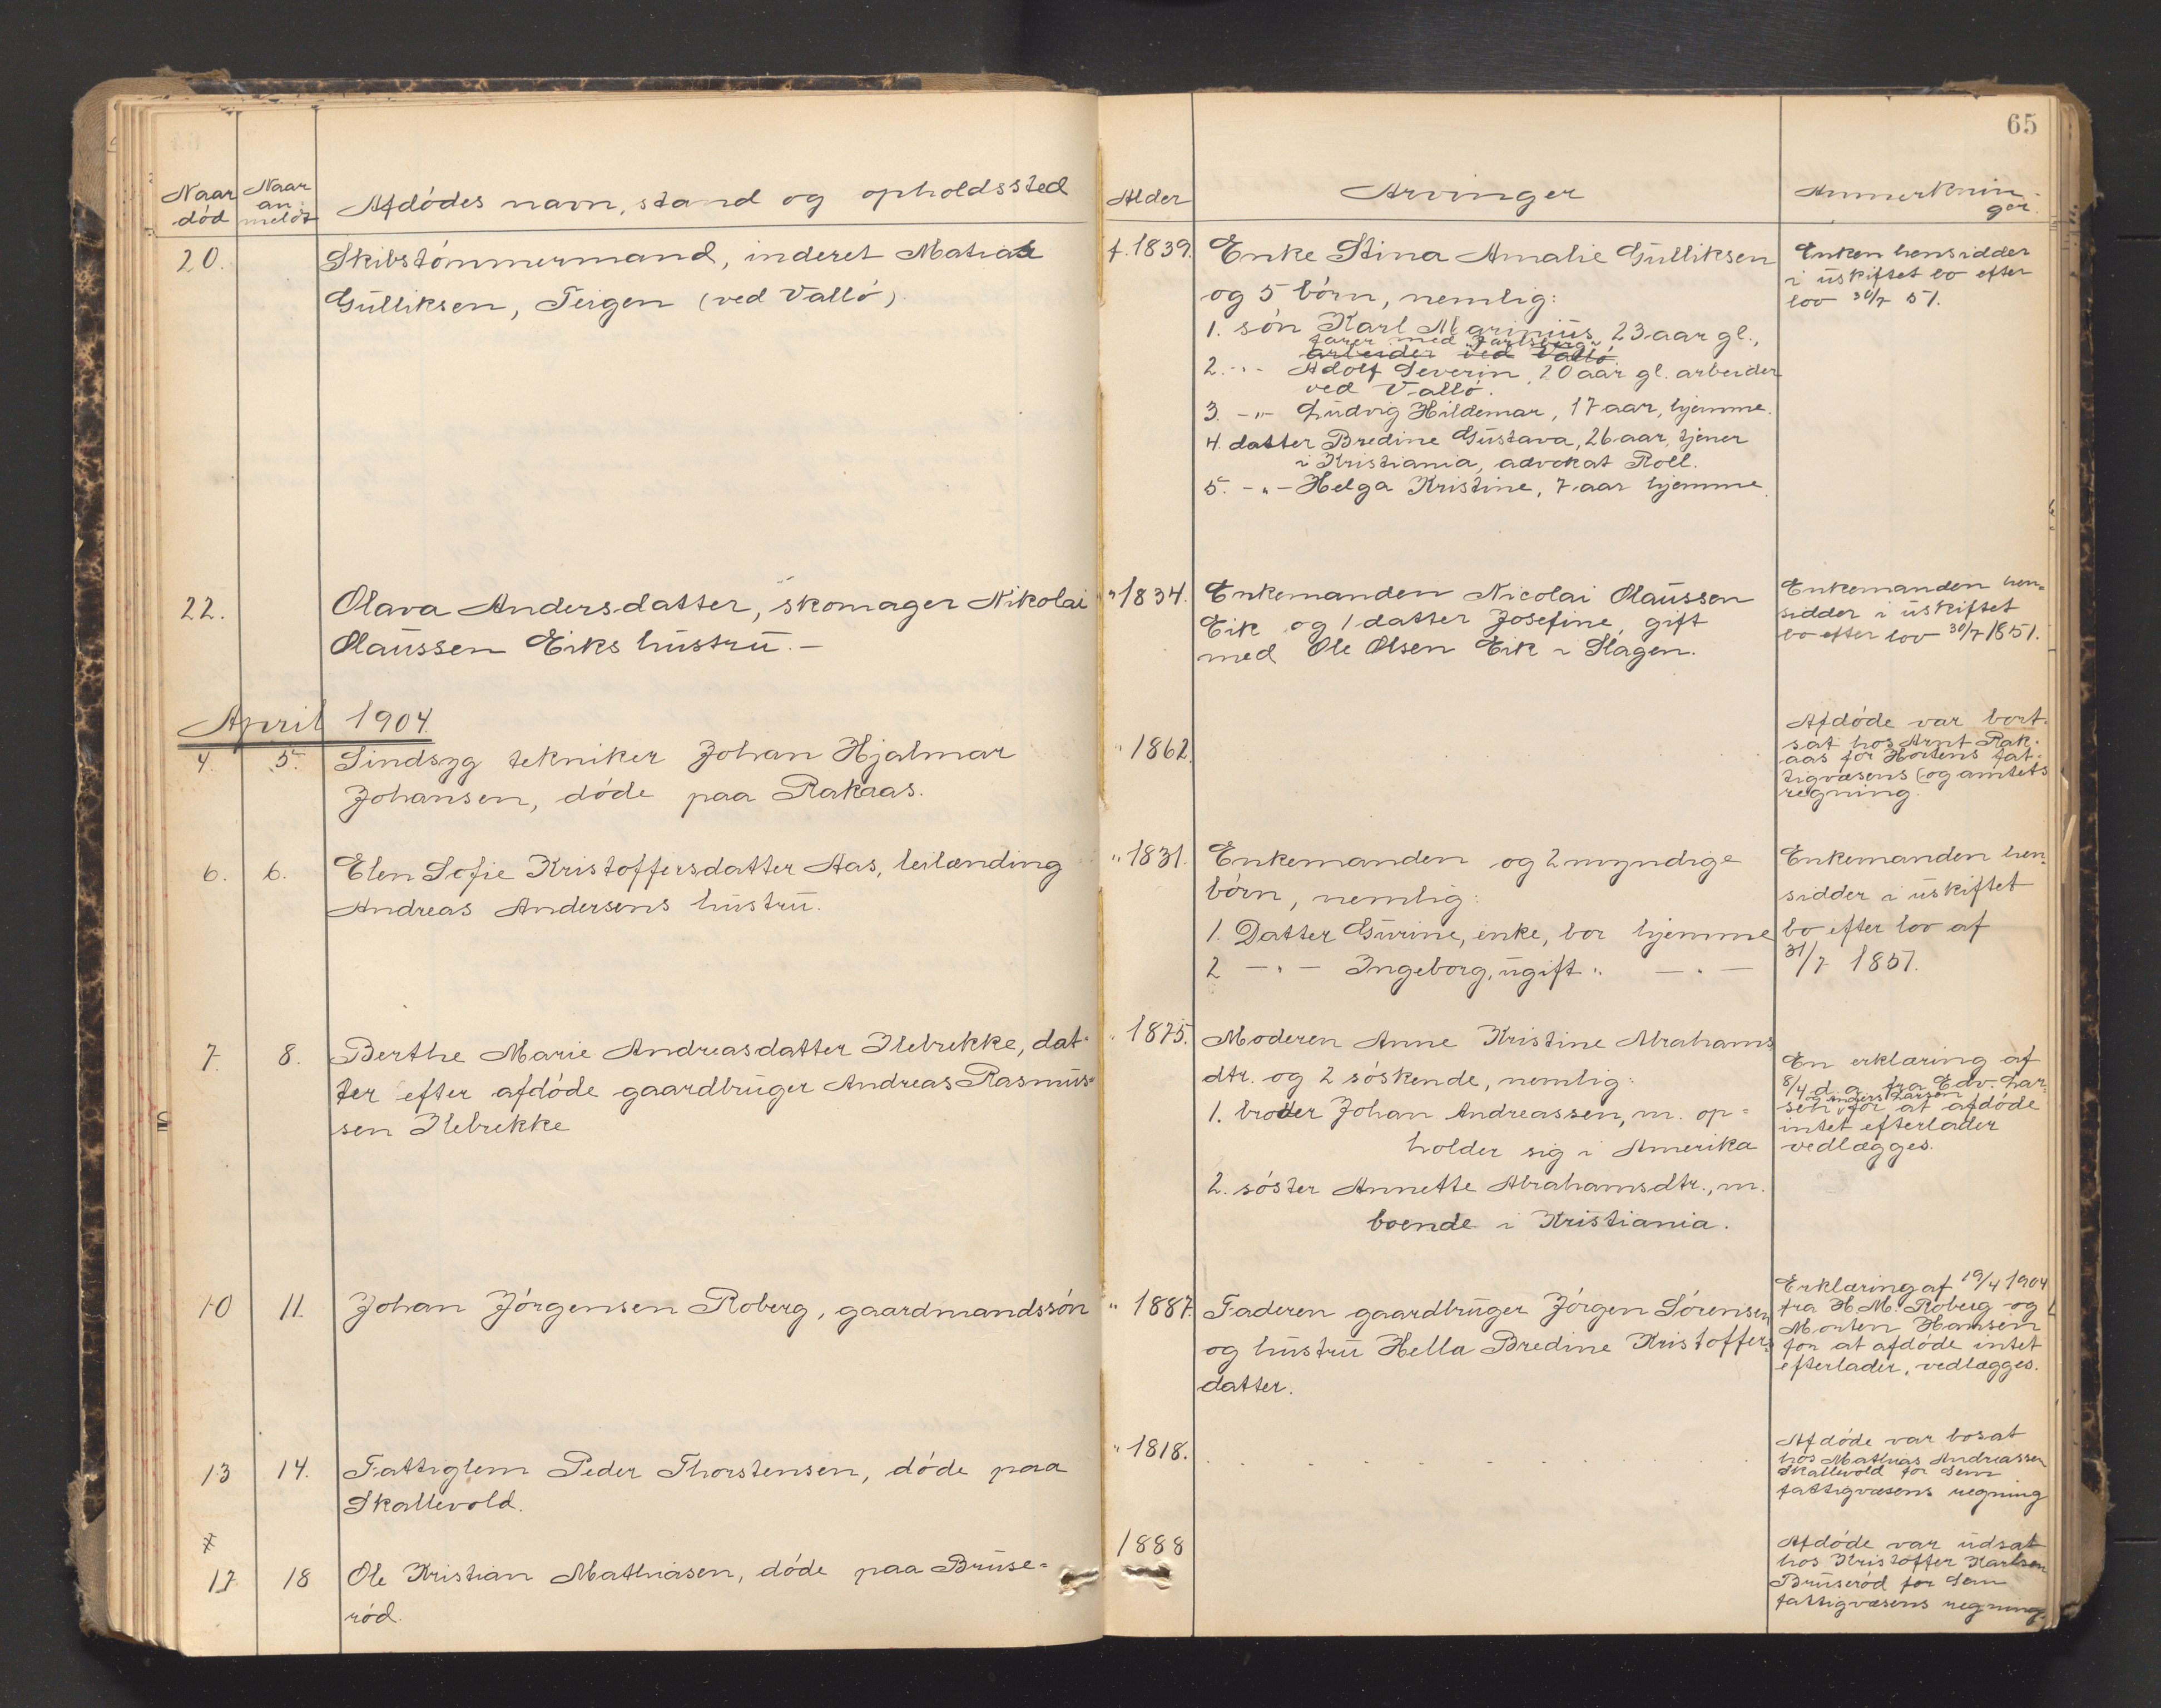 65
Naar død
Naar an- meldt
Afdödes navn, stand og opholdssted
Alder
Arvinger
Anmerknin- ger.
20.
Skibstömmermand, inderst Matias
Gulliksen, Teigen (ved Vallö)
f. 1839.
Enke Stina Amalie Gulliksen
og 5 börn, nemlig:
1. sön Karl Marinius 23 aar gl.,
farer med "Jarlsberg"
arbeider ved Vallö
2. -"- Adolf Severin, 20 aar gl. arbeider
ved Vallö.
3. -"- Ludvig Hildemar, 17 aar, hjemme.
4. datter Bredine Gustava, 26 aar, tjener
i Kristiania, advokat Roll.
5. -"- Helga Kristine, 7 aar hjemme.
Enken hensidder
i uskiftet bo efter
lov 30/7 51.
22.
Olava Andersdatter, skomager Nikolai
Olaussen Eiks hustru. -
" 1834.
Enkemanden Nicolai Olaussen
Eik og 1 datter Josefine, gift
med Ole Olsen Eik i Slagen.
Enkemanden hen-
sidder i uskiftet
bo efter lov 30/7 1851.
April 1904.
4. 5.
Sindsyg tekniker Johan Hjalmar
Johansen, döde paa Rakaas.
" 1862.
Afdöde var bort-
sat hos Arnt Rak-
aas for Hortens fat-
tigvæsens (og amtets
regning.
6. 6.
Elen Sofie Kristoffersdatter Aas, leilænding
Andreas Andersens hustru.
" 1831.
Enkemanden og 2 myndige
börn, nemlig:
1. Datter Gurine, enke, bor hjemme
2 -"- Ingeborg, ugift " -"-
Enkemanden hen-
sidder i uskiftet
bo efter lov af
31/7 1851.
7. 8.
Berthe Marie Andreasdatter Ilebrekke, dat-
ter efter afdöde gaardbruger Andreas Rasmus-
sen Ilebrekke
" 1875.
Moderen Anne Kristine Abrahams
dtr. og 2 söskende, nemlig:
1. broder Johan Andreassen, m. op-
holder sig i Amerika
2. söster Annette Abrahamsdtr., m.
boende i Kristiania.
En erklæring af
8/4 d. a. fra Edv. Lar-
og Anders Larsen
sen, for at afdöde
intet efterlader
vedlægges.
10 11.
Johan Jörgensen Roberg, gaardmandssön
" 1887.
Faderen gaardbruger Jörgen Sörensen
og hustru Hella Bredine Kristoffers-
datter.
Erklæring af 19/4 1904
fra H. M. Roberg og
Morten Hansen
for at afdöde intet
efterlader, vedlægges.
13 14.
Fattiglem Peder Thorstensen, döde paa
Skallevold.
" 1818.
Afdöde var bosat
hos Mathias Andreassen
Skallevold for Sem
fattigvæsens regning
17 18
Ole Kristian Mathiasen, döde paa Bruse-
röd.
1888
Afdöde var udsat
hos Kristoffer Karlsen
Bruseröd for Sem
fattigvæsens regning.